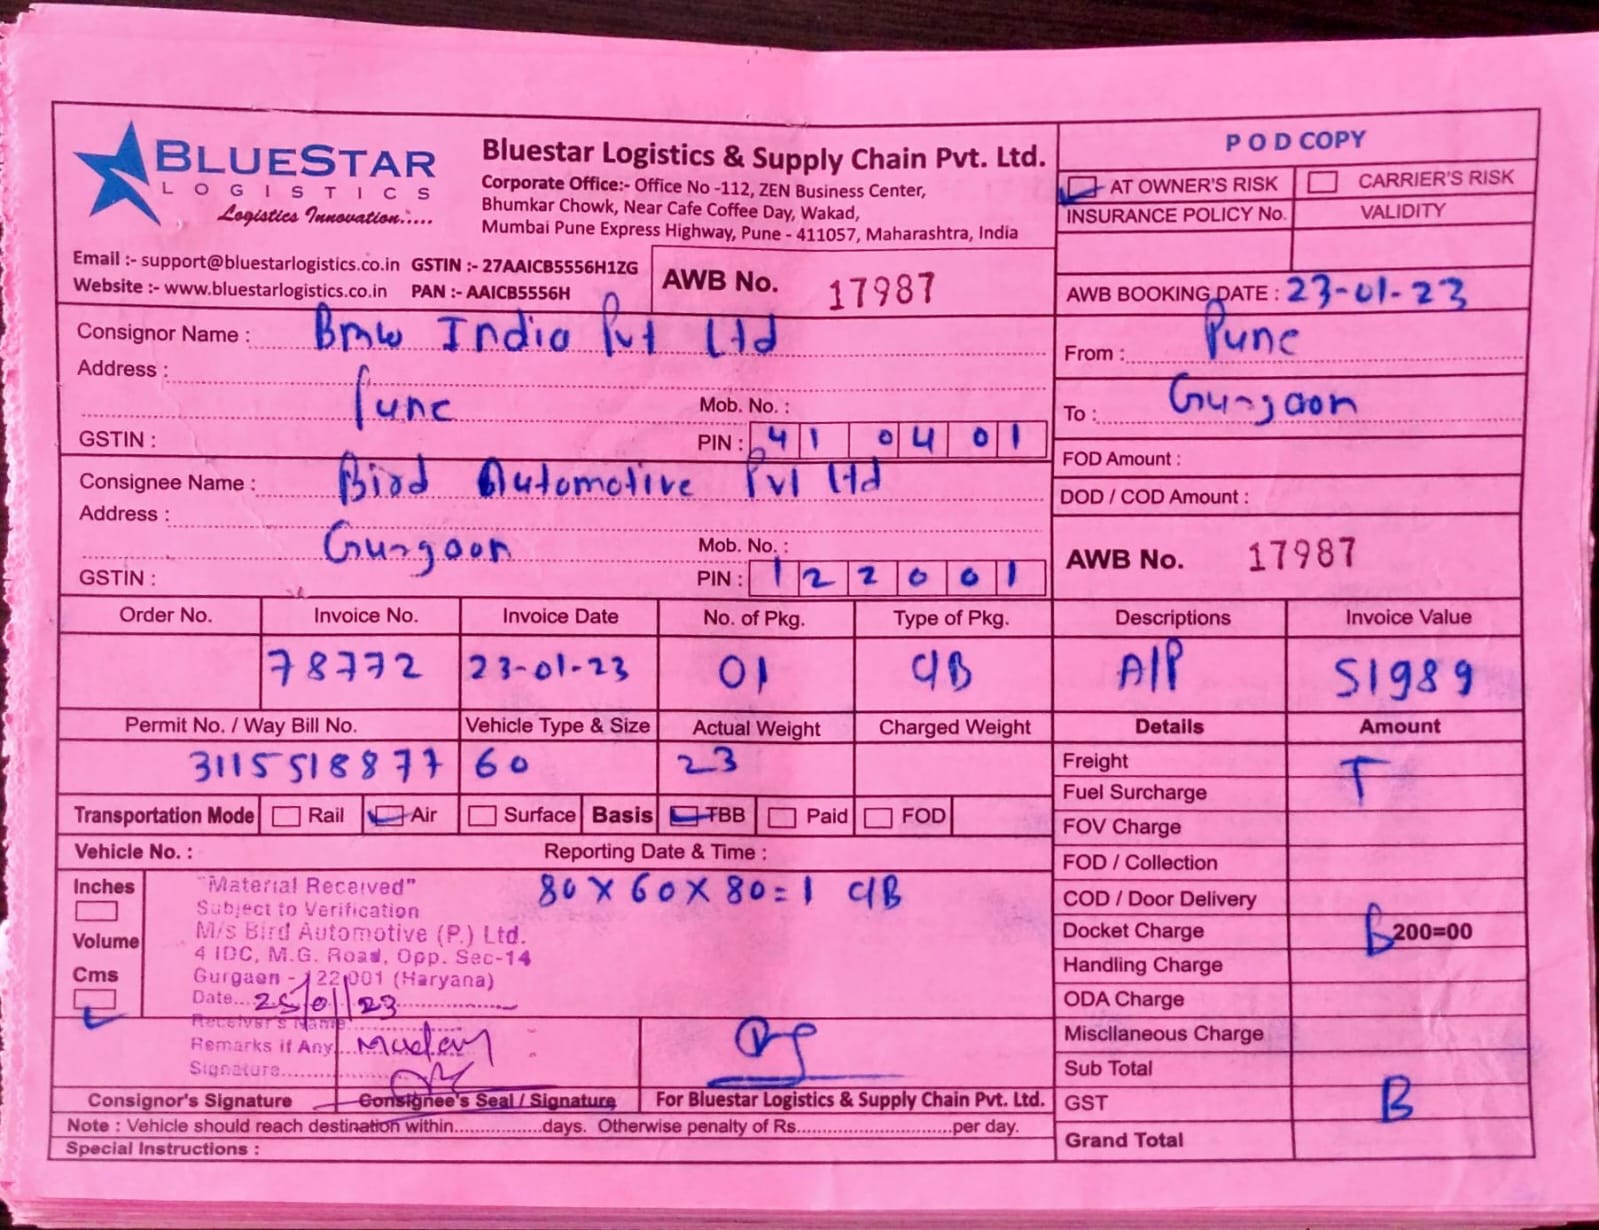 BLUESTAR
LOGISTICS
Logistics Innovation.....
Bluestar Logistics & Supply Chain Pvt. Ltd.
Corporate Office:- Office No -112, ZEN Business Center,
Bhumkar Chowk, Near Cafe Coffee Day, Wakad,
Mumbai Pune Express Highway, Pune - 411057, Maharashtra, India
Email :- support@bluestarlogistics.co.in GSTIN :- 27AAICB5556H1ZG
Website :- www.bluestarlogistics.co.in PAN :- AAICB5556H
AWB No. 17987
POD COPY
AT OWNER'S RISK CARRIER'S RISK
INSURANCE POLICY No. VALIDITY
AWB BOOKING DATE : 23-01-23
Consignor Name : Bmw India Pvt Ltd
Address :
Pune Mob. No. :
GSTIN : PIN : 410401
From : Pune
To : Gurgaon
Consignee Name : Bird Automotive Pvt Ltd
Address :
Gurgaon Mob. No. :
GSTIN : PIN : 122001
FOD Amount :
DOD / COD Amount :
AWB No. 17987
Order No. Invoice No. Invoice Date No. of Pkg. Type of Pkg. Descriptions Invoice Value
78772 23-01-23 01 C/B A/P 51989
Permit No. / Way Bill No. Vehicle Type & Size Actual Weight Charged Weight Details Amount
3115518877 60 23
Transportation Mode Rail Air Surface Basis TBB Paid FOD
Vehicle No. : Reporting Date & Time :
Inches
Volume
Cms
80 X 60 X 80 = 1 C/B
"Material Received"
Subject to Verification
M/s Bird Automotive (P.) Ltd.
4 IDC, M.G. Road, Opp. Sec-14
Gurgaon - 122001 (Haryana)
Date... 25/01/23
Receiver's Name
Remarks if Any
Signature
Consignor's Signature Consignee's Seal / Signature For Bluestar Logistics & Supply Chain Pvt. Ltd.
Note : Vehicle should reach destination within...............days. Otherwise penalty of Rs............................per day.
Special Instructions :
Freight T
Fuel Surcharge
FOV Charge
FOD / Collection
COD / Door Delivery
Docket Charge B 200=00
Handling Charge
ODA Charge
Miscllaneous Charge
Sub Total
GST B
Grand Total